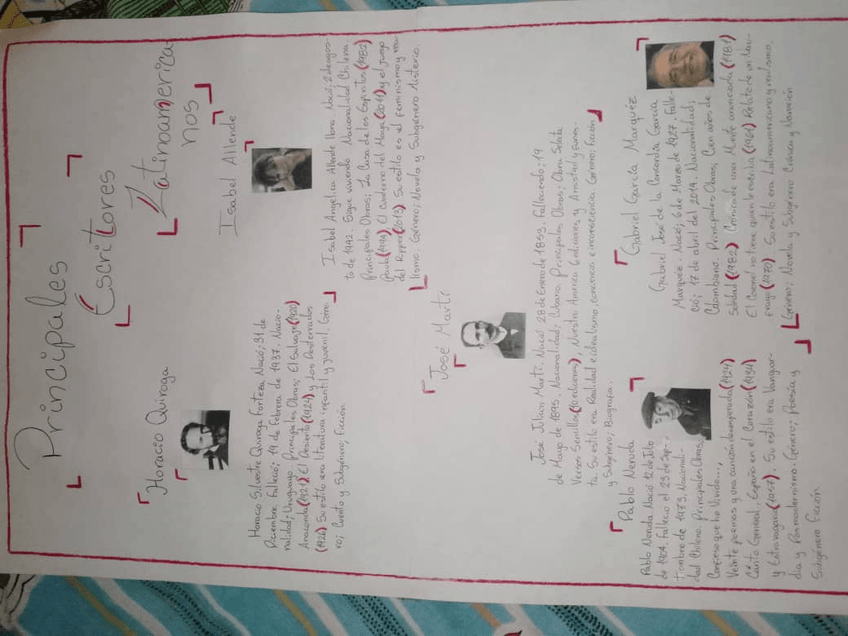 Principales
Escritores
Latinoamerica
nos
Horacio Quiroga
Horacio Silvestre Quiroga Forteza Nació; 31 de
Diciembre Falleció; 19 de Febrero de 1937. Nacio-
nalidad; Uruguayo Principales Obras; El Salvaje (1920)
Anaconda (1921) El Desierto (1924) y Los Desterrados
(1926) Su estilo era literatura infantil y juvenil. Géne-
ro; Cuento y Subgénero; Ficción
Isabel Allende
Isabel Angelica Allende Llona Nació; 2 de agos-
to de 1942. Sigue viviendo Nacionalidad Chilena
Principales Obras; La Casa de los Espiritus (1982)
Paula (1994) El Cuaderno del Maya (2011) y el juego
del Ripper (2013) Su estilo es el feminismo y rea-
lismo. Género; Novela y Subgénero Misterio.
José Martí
José Julian Martí. Nació 28 de Enero de 1853. Falleciendo; 19
de Mayo de 1895. Nacionalidad; Cubano. Principales Obras;
Versos Sencillos, Nuestra America
Su estilo era Realidad e idealismo, conciencia e inconsciencia. Género; Ficción
y Subgénero; Biografia.
Pablo Neruda
Pablo Neruda Nació 12 de Julio
de 1904. Falleció el 23 de Sep-
tiembre de 1973. Nacionali-
dad Chileno. Principales Obras,
Confieso que he Vivido...,
Veinte poemas y una canción desesperada (1924)
Canto General. España en el Corazón (1937)
y Estravagario (1958). Su estilo era Vanguar-
dia y Posmodernismo. Género; Poesía y
Subgénero Ficción
Gabriel García Marquéz
Gabriel José de la Concordia García
Marquez. Nació; 6 de Marzo de 1927. Falle-
ció; 17 de abril del 2014. Nacionalidad;
Colombiano. Principales Obras, Cien años de
Soledad (1982) Crónica de una Muerte anunciada (1981)
El Coronel no tiene quien le escriba (1961) Relato de un Nau-
frago (1970). Su estilo era Latinoamericano y realismo.
Género; Novela y Subgénero Crónica y Narración